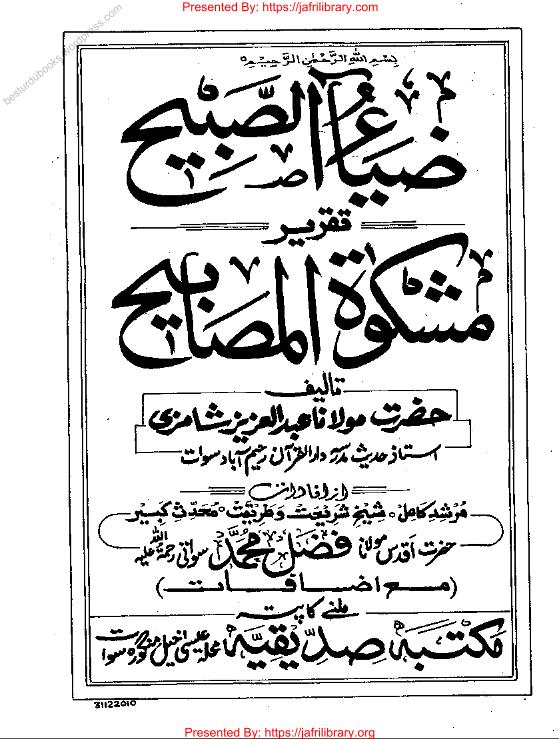 Presented By: https://jafrilibrary.com
besturdubooks.wordpress.com
بسم اللہ الرحمٰن الرحیم
ضیاء الصبیح
تقریر
مشکوٰۃ المصابیح
تالیف
حضرت مولانا عبدالعزیز شامزی
استاذ حدیث مدرسہ دارالقرآن رحیم آباد سوات
از افادات
مرشد کامل، شیخ شریعت و طریقت، محدث کبیر
حضرت اقدس مولانا فضل محمد سواتی رحمۃ اللہ علیہ
(مع اضافات)
ملنے کا پتہ
مکتبہ صدیقیہ محلہ عیسیٰ خیل منگورہ سوات
31122010
Presented By: https://jafrilibrary.org